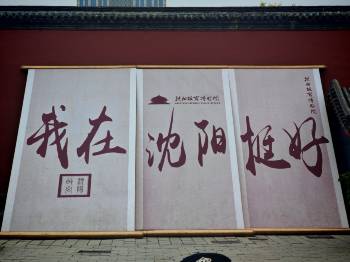 我在沈阳挺好
沈阳故宫博物院
沈阳故宫博物院